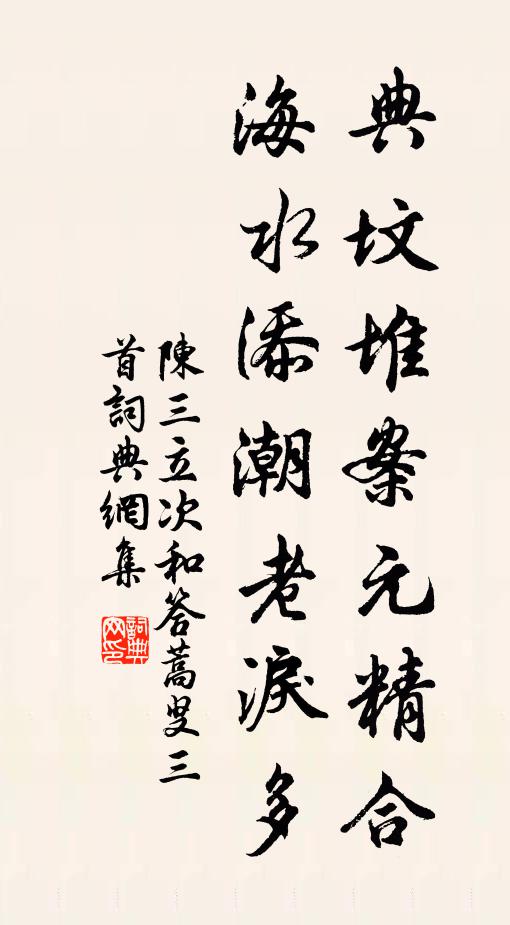 典坟堆案元精合
海水添潮老淚多
陳三立次和答蒿叟三
首詞典網集
詞典网印